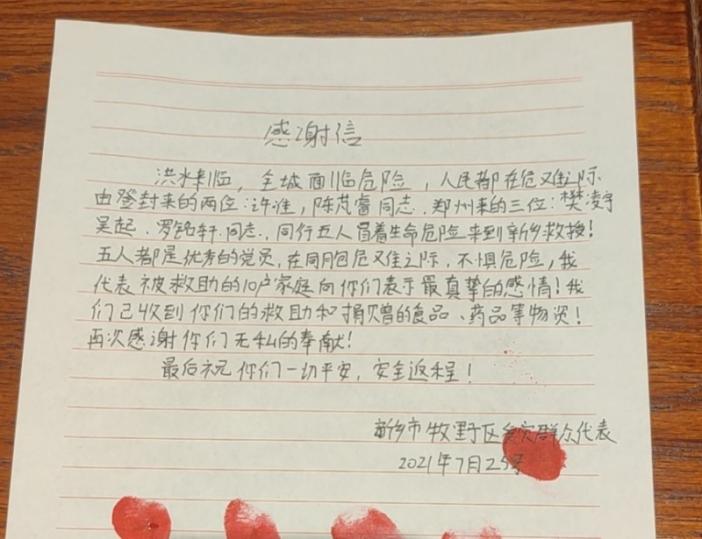 感谢信
洪水来临，全城面临危险，人民都在危难之际
由登封来的两位：许淮，陈芃睿同志，郑州来的三位：樊凌宇
吴起、罗铭轩同志，同行五人冒着生命危险来到新乡救援！
五人都是优秀的党员，在同胞危难之际，不惧危险，我
代表被救助的10户家庭向你们表示最真挚的感情！我
们已收到你们的救助和捐赠的食品、药品等物资！
再次感谢你们无私的奉献！
最后祝你们一切平安，安全返程！
新乡市牧野区受灾群众代表
2021年7月25号